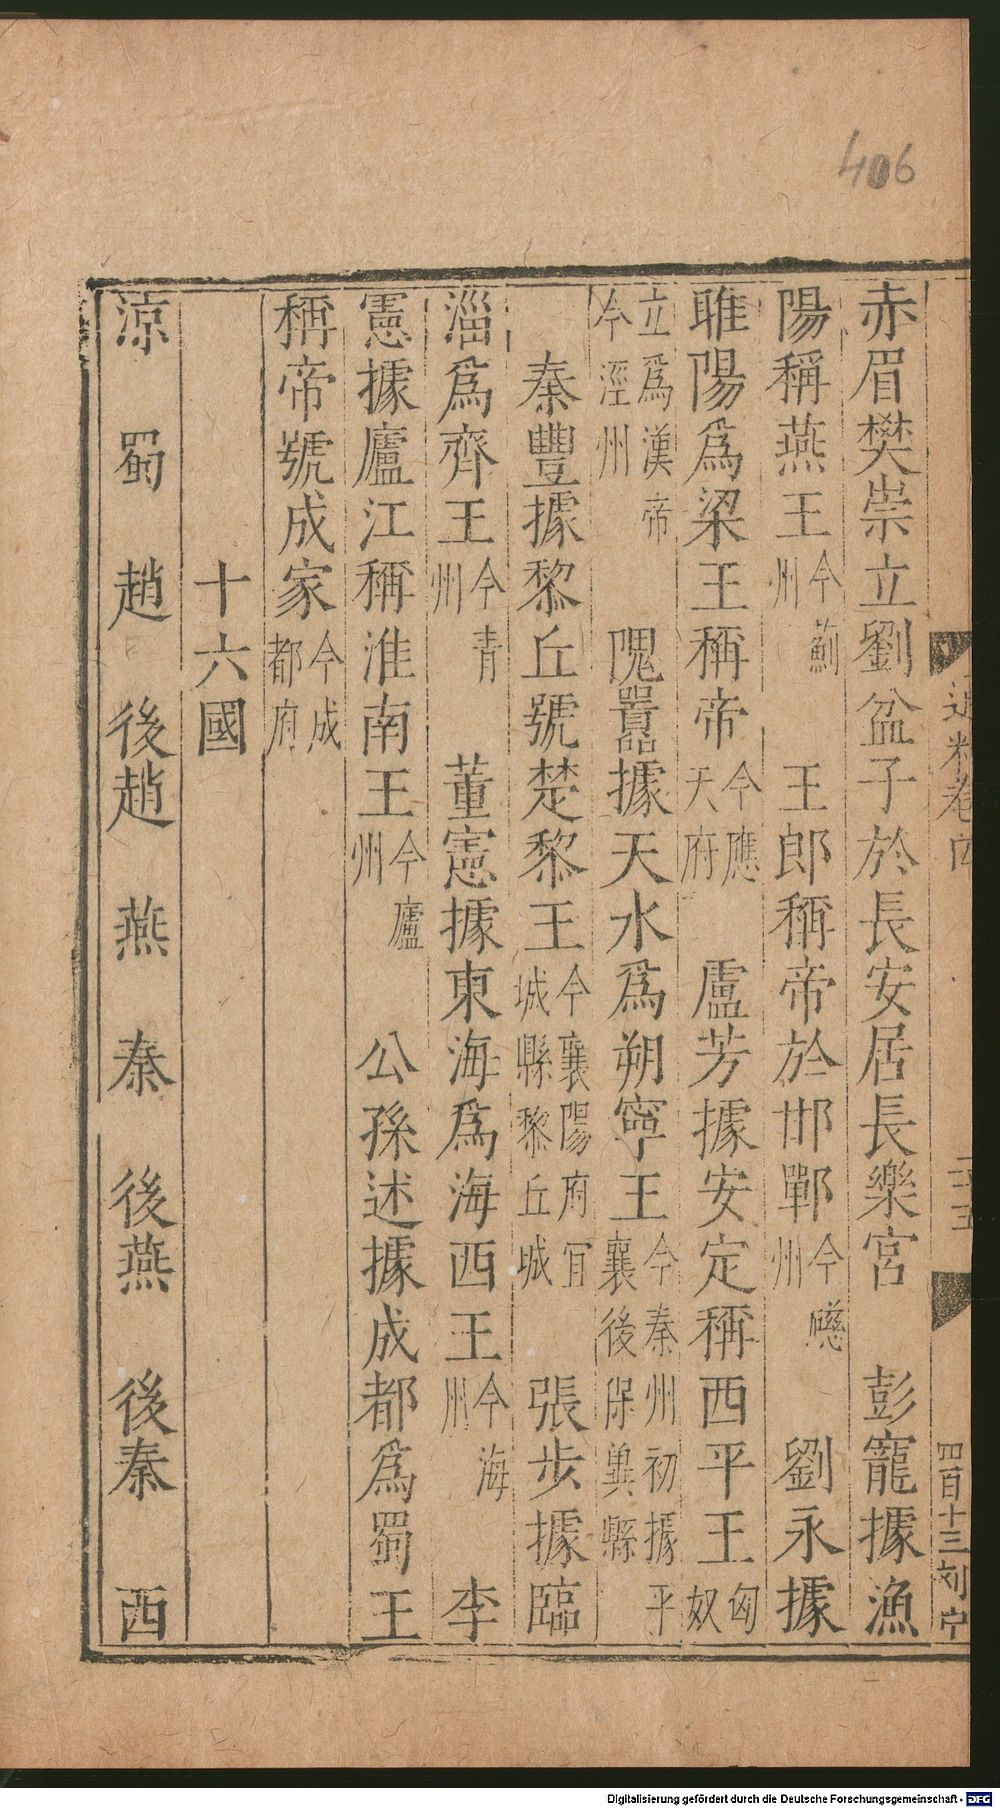 406
赤眉樊崇立劉盆子於長安居長樂宮　彭寵據漁
陽稱燕王今薊州　王郎稱帝於邯鄲今磁州　劉永據
睢陽爲梁王稱帝今應天府　盧芳據安定稱西平王匈奴
立爲漢帝今涇州　隗囂據天水爲朔寧王今秦州初據平襄後保冀縣
秦豐據黎丘號楚黎王今襄陽府宜城縣黎丘城　張步據臨
淄爲齊王今青州　董憲據東海爲海西王今海州　李
憲據廬江稱淮南王今廬州　公孫述據成都爲蜀王
稱帝號成家今成都府
十六國
涼　蜀　趙　後趙　燕　秦　後燕　後秦　西
四百十三
Digitalisierung gefördert durch die Deutsche Forschungsgemeinschaft - DFG